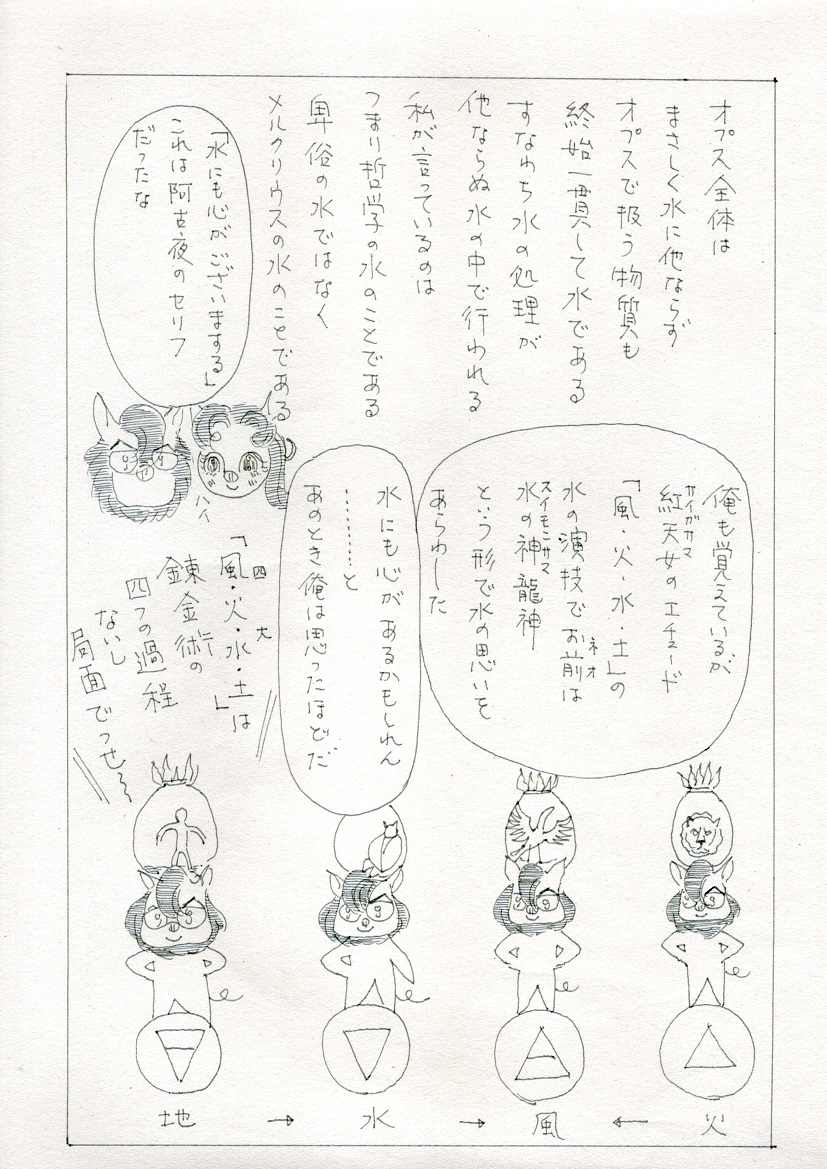 オプス全体は
まさしく水に他ならず
オプスで扱う物質も
終始一貫して水である
すなわち水の処理が
他ならぬ水の中で行われる
私が言っているのは
つまり哲学の水のことである
卑俗の水ではなく
メルクリウスの水のことである
「水にも心がございまする」
これは阿古夜のセリフ
だったな
ハイ
俺も覚えているが
紅天女のエチュード
サイガサマ
「風・火・水・土」の
水の演技でお前は
ネオ
水の神龍神
スイモニサマ
という形で水の思いを
あらわした
水にも心があるかもしれん
………と
あのとき俺は思ったほどだ
「風・火・水・土」は
四大
錬金術の
四つの過程
ないし
局面でっせ～
火
←
風
→
水
→
地